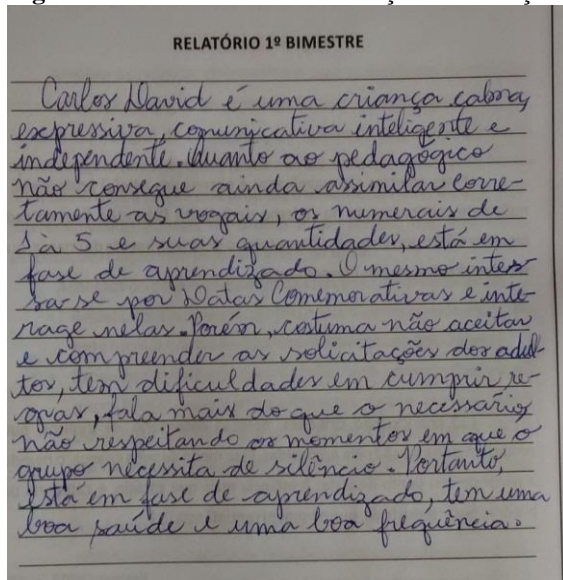 RELATÓRIO 1º BIMESTRE
Carlos David é uma criança calma,
expressiva, comunicativa inteligente e
independente. Quanto ao pedagógico
não consegue ainda assimilar corre-
tamente as vogais, os numerais de
1 à 5 e suas quantidades, está em
fase de aprendizado. O mesmo interes
sa-se por Datas Comemorativas e inte-
rage nelas. Porém, costuma não aceitar
e compreender as solicitações dos adul-
tos, tem dificuldades em cumprir re-
gras, fala mais do que o necessário,
não respeitando os momentos em que o
grupo necessita de silêncio. Portanto,
está em fase de aprendizado, tem uma
boa saúde e uma boa frequência.